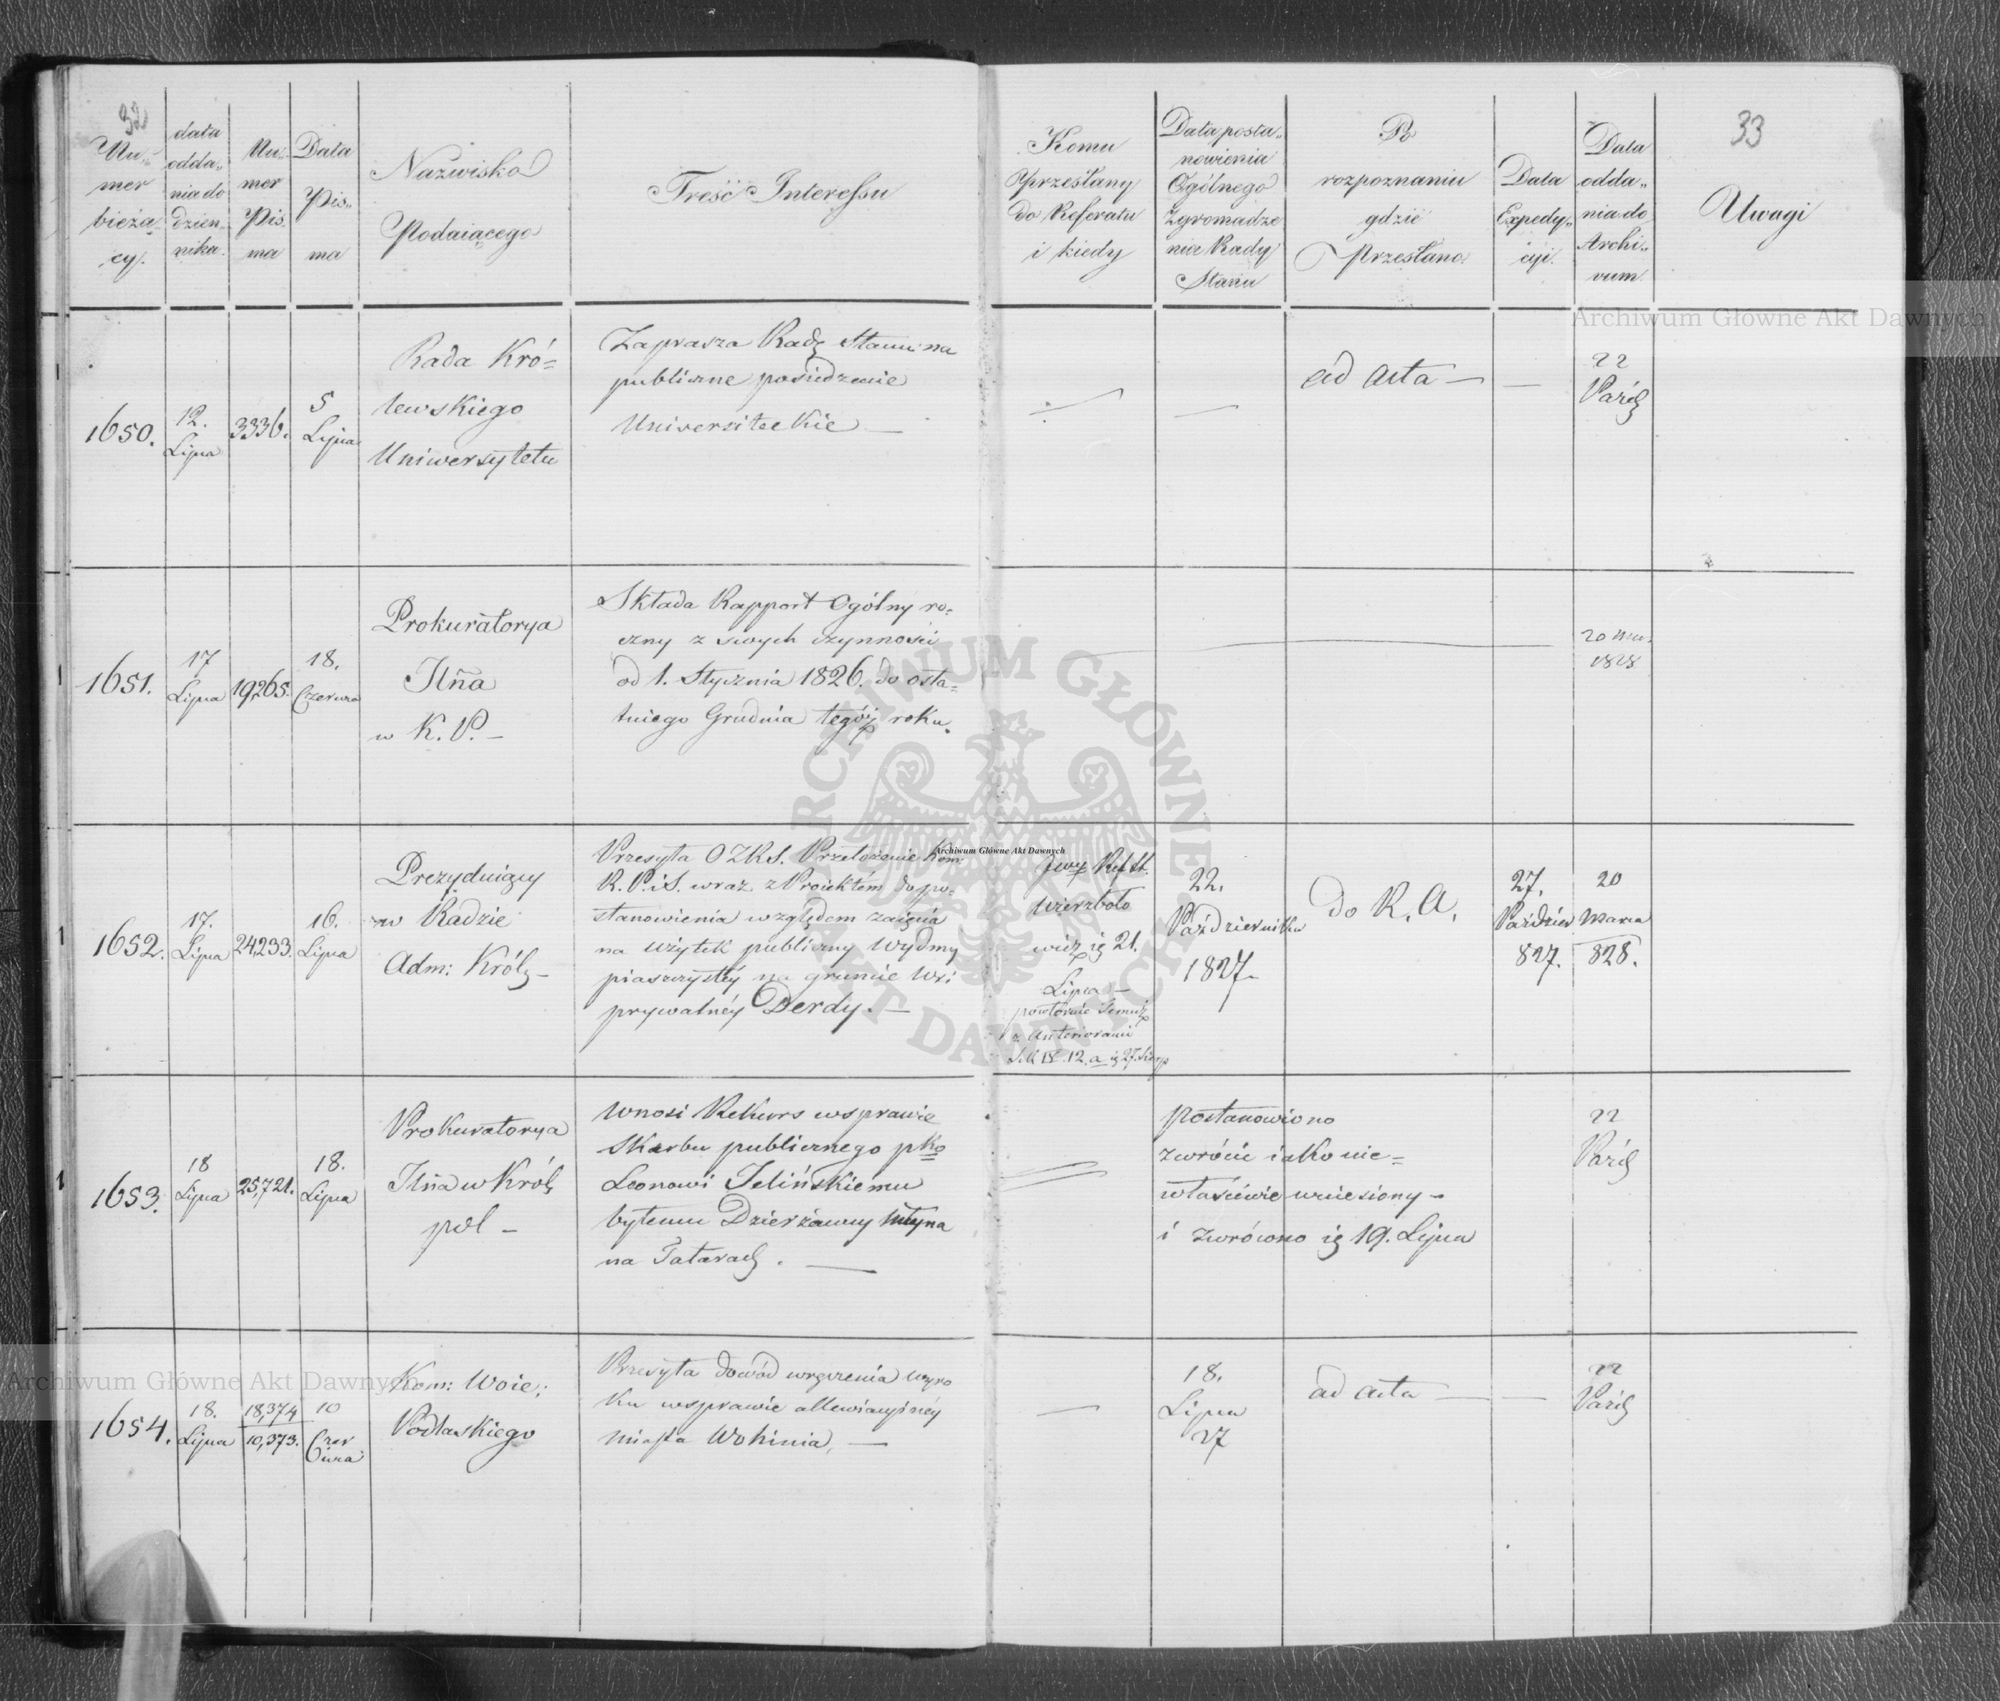 32
Nu-
mer
bieżą-
cy.
data
odda-
nia do
dzien-
nika
Nu-
mer
Pis-
ma
Data
Pis-
ma
Nazwisko
Podaiącego
Treść Interessu
Komu
przesłany
do Referatu
i kiedy
Data posta-
nowienia
Ogólnego
Zgromadze
nia Rady
Stanu
Po
rozpoznaniu
gdzie
Przesłano
Data
Expedy-
cyi.
Data
odda-
nia do
Archi-
vum
33
Uwagi
1650.
12.
Lipca
3336.
5
Lipca
Rada Kró=
lewskiego
Uniwersytetu
Zaprasza Radę Stanu na
publiczne posiedzenie
Uniwersiteckie —
ad acta —
22
Paźd
1651.
17
Lipca
19265.
18.
Czerwca
Prokuratorya
Jlna
w K. P. —
Składa Rapport Ogólny ro=
czny z swych czynności
od 1. Stycznia 1826. do osta=
tniego Grudnia tegóż roku.
20 Mar.
1828
1652.
17.
Lipca
24,233.
16.
Lipca
Prezyduiący
w Radzie
Adm: Król —
Przesyła OZRS. Przełożenie Kom:
R. P. i S. wraz z Proiektem do po=
stanowienia względem zaięcia
na użytek publiczny wydmy
piaszczystéy na gruncie wsi
prywatnéy Derdy. —
Ref. St.
Wierzboło
wicz 21.
Lipca —
powtórnie
S. 27. Sierp
22.
Października
1827.
do R. A.
27.
Paździer
827.
20
Marca
828.
1653.
18
Lipca
25,721.
18.
Lipca
Prokuratorya
Jlna w Król
pol —
Wnosi Rekurs w sprawie
Skarbu publicznego pko
Leonowi Jelińskiemu
byłemu Dzierżawcy młyna
na Tatarach. —
postanowiono
zwrócić iako nie=
właściwie wniesiony —
i zwrócono 19. Lipca
22
Paźd
1654.
18.
Lipca
18,374
10,373.
10
Czer
wca
Kom: Woie:
Podlaskiego
Przesyła dowód wręczenia wyro
ku w sprawie allewiacyiney
miasta Wohinia, —
18.
Lipca
27
ad acta —
22
Paźd
Archiwum Główne Akt Dawnych
Archiwum Główne Akt Dawnych
Archiwum Główne Akt Dawnych
ARCHIWUM GŁÓWNE AKT DAWNYCH